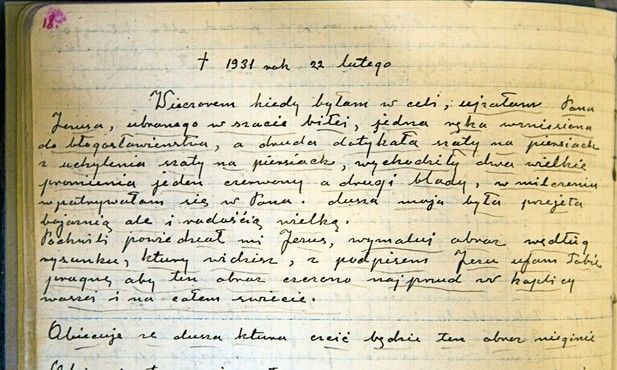 18.
† 1931 rok 22 lutego
Wieczorem kiedy byłam w celi, ujrzałam Pana
Jezusa, ubranego w szacie białej, jedna ręka wzniesiona
do błogosławieństwa, a druda dotykała szaty na piersiach
z uchylenia szaty na piersiach, wychodziły dwa wielkie
promienia jeden czerwony a drugi blady, w milczeniu
wpatrywałam się w Pana. dusza moja była przejęta
bojaźnią ale i radością wielką.
Pochwili powiedział mi Jezus, wymaluj obraz według
rysunku, który widzisz, z podpisem Jezu ufam Tobie
pragnę aby ten obraz czczono najprzud w kaplicy
waszej i na całem świecie.
Obiecuję że dusza ktura czcić będzie ten obraz nie zginie